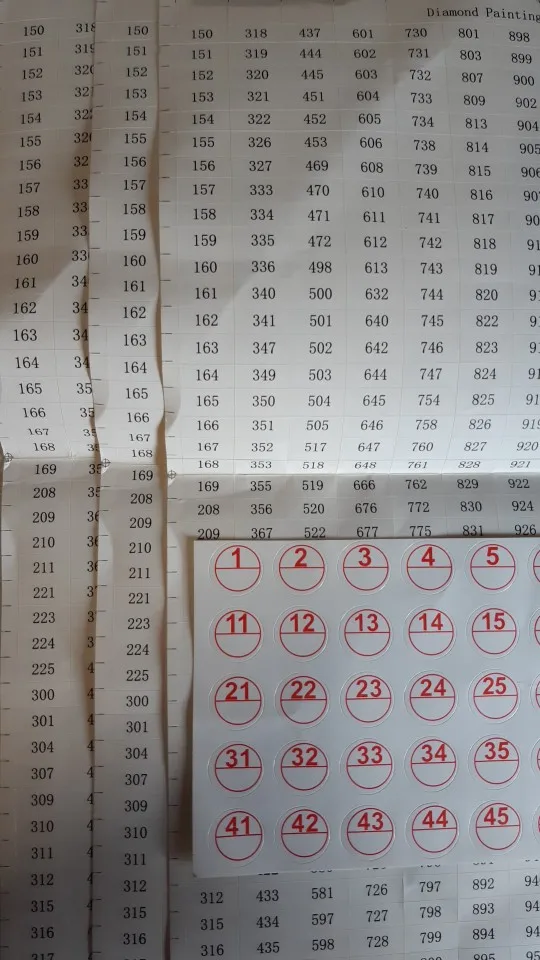 150
151
152
153
154
155
156
157
158
159
160
161
162
163
164
165
166
167
168
169
208
209
210
211
221
223
224
225
300
301
304
307
309
310
311
312
315
316
150
151
152
153
154
155
156
157
158
159
160
161
162
163
164
165
166
167
168
169
208
209
210
211
221
223
224
225
300
301
304
307
309
310
311
312
315
316
Diamond Painting
150 318 437 601 730 801 898
151 319 444 602 731 803 899
152 320 445 603 732 807 900
153 321 451 604 733 809 902
154 322 452 605 734 813 904
155 326 453 606 738 814 905
156 327 469 608 739 815
157 333 470 610 740 816
158 334 471 611 741 817
159 335 472 612 742 818
160 336 498 613 743 819
161 340 500 632 744 820
162 341 501 640 745 822
163 347 502 642 746 823
164 349 503 644 747 824
165 350 504 645 754 825
166 351 505 646 758 826 919
167 352 517 647 760 827 920
168 353 518 648 761 828 921
169 355 519 666 762 829 922
208 356 520 676 772 830 924
209 367 522 677 775 831 926
1 2 3 4 5
11 12 13 14 15
21 22 23 24 25
31 32 33 34 35
41 42 43 44 45
312 433 581 726 797 892
315 434 597 727 798 893
316 435 598 728 799 894